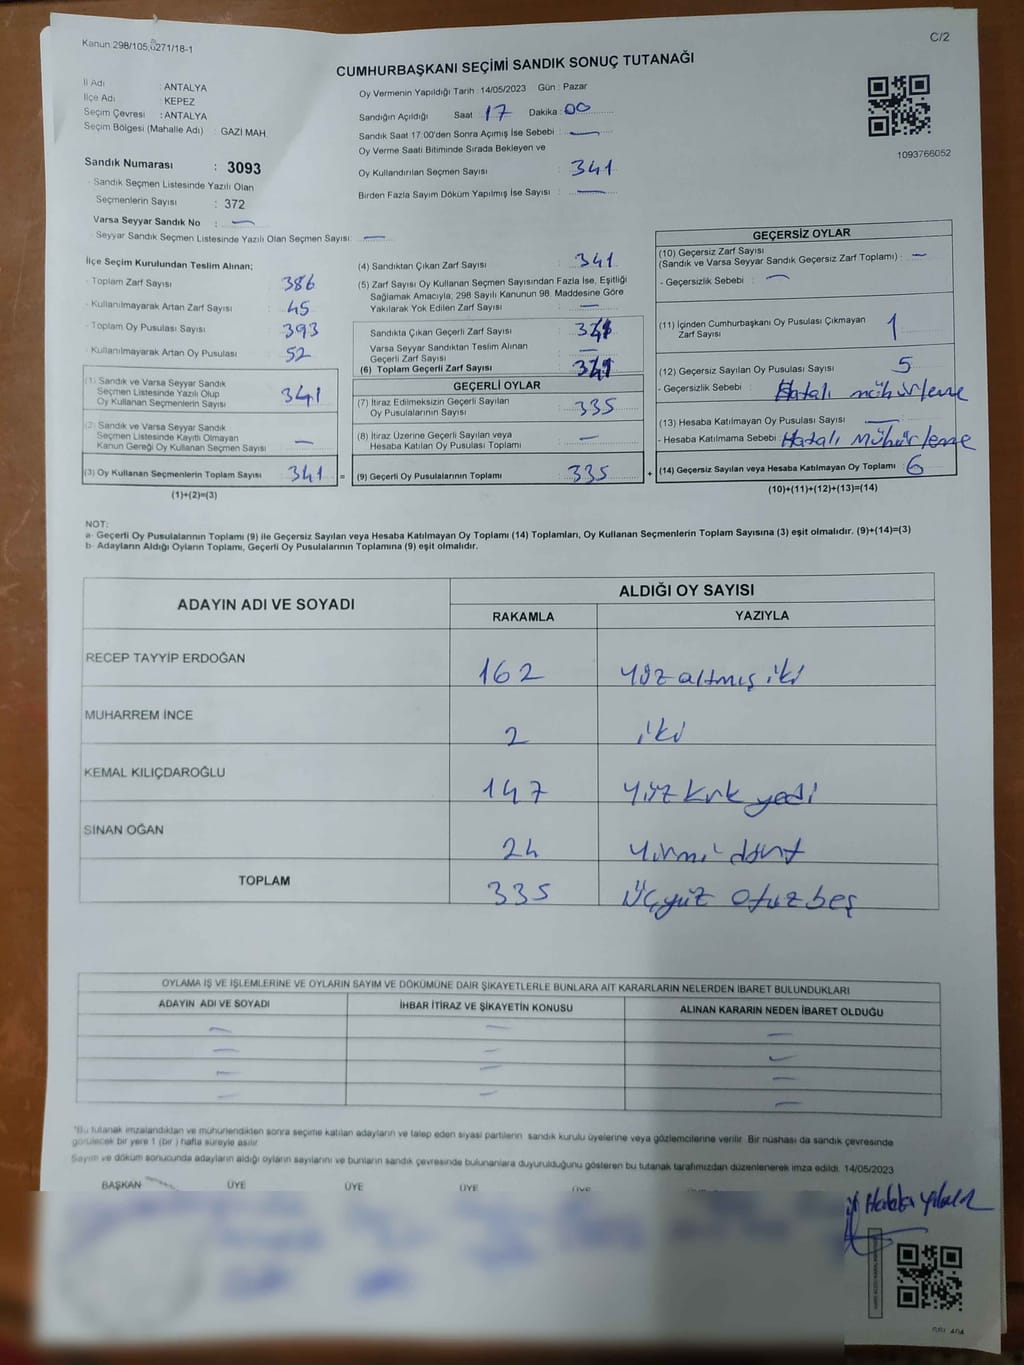 Kanun 298/105,0271/18-1
C/2
CUMHURBAŞKANI SEÇİMİ SANDIK SONUÇ TUTANAĞI
İl Adı : ANTALYA
İlçe Adı : KEPEZ
Seçim Çevresi : ANTALYA
Seçim Bölgesi (Mahalle Adı) : GAZİ MAH.
Sandık Numarası : 3093
- Sandık Seçmen Listesinde Yazılı Olan
Seçmenlerin Sayısı : 372
Varsa Seyyar Sandık No : —
- Seyyar Sandık Seçmen Listesinde Yazılı Olan Seçmen Sayısı: —
Oy Vermenin Yapıldığı Tarih : 14/05/2023 Gün : Pazar
Sandığın Açıldığı Saat : 17 Dakika : 00
Sandık Saat 17.00'den Sonra Açımış İse Sebebi : —
Oy Verme Saati Bitiminde Sırada Bekleyen ve
Oy Kullandırılan Seçmen Sayısı : 341
Birden Fazla Sayım Döküm Yapılmış İse Sayısı : —
1093766052
İlçe Seçim Kurulundan Teslim Alınan;
- Toplam Zarf Sayısı : 386
- Kullanılmayarak Artan Zarf Sayısı : 45
- Toplam Oy Pusulası Sayısı : 393
- Kullanılmayarak Artan Oy Pusulası : 52
(1) Sandık ve Varsa Seyyar Sandık
Seçmen Listesinde Yazılı Olup
Oy Kullanan Seçmenlerin Sayısı : 341
(2) Sandık ve Varsa Seyyar Sandık
Seçmen Listesinde Kayıtlı Olmayan
Kanun Gereği Oy Kullanan Seçmen Sayısı : —
(3) Oy Kullanan Seçmenlerin Toplam Sayısı : 341 =
(1)+(2)=(3)
(4) Sandıktan Çıkan Zarf Sayısı : 341
(5) Zarf Sayısı Oy Kullanan Seçmen Sayısından Fazla İse, Eşitliği
Sağlamak Amacıyla, 298 Sayılı Kanunun 98. Maddesine Göre
Yakılarak Yok Edilen Zarf Sayısı : —
Sandıkta Çıkan Geçerli Zarf Sayısı : 341
Varsa Seyyar Sandıktan Teslim Alınan
Geçerli Zarf Sayısı : —
(6) Toplam Geçerli Zarf Sayısı : 341
GEÇERLİ OYLAR
(7) İtiraz Edilmeksizin Geçerli Sayılan
Oy Pusulalarının Sayısı : 335
(8) İtiraz Üzerine Geçerli Sayılan veya
Hesaba Katılan Oy Pusulası Toplamı : —
(9) Geçerli Oy Pusulalarının Toplamı : 335 +
GEÇERSİZ OYLAR
(10) Geçersiz Zarf Sayısı
(Sandık ve Varsa Seyyar Sandık Geçersiz Zarf Toplamı) : —
- Geçersizlik Sebebi : —
(11) İçinden Cumhurbaşkanı Oy Pusulası Çıkmayan
Zarf Sayısı : 1
(12) Geçersiz Sayılan Oy Pusulası Sayısı : 5
- Geçersizlik Sebebi : Hatalı mühürleme
(13) Hesaba Katılmayan Oy Pusulası Sayısı : —
- Hesaba Katılmama Sebebi : Hatalı Mühürleme
(14) Geçersiz Sayılan veya Hesaba Katılmayan Oy Toplamı : 6
(10)+(11)+(12)+(13)=(14)
NOT:
a- Geçerli Oy Pusulalarının Toplamı (9) ile Geçersiz Sayılan veya Hesaba Katılmayan Oy Toplamı (14) Toplamları, Oy Kullanan Seçmenlerin Toplam Sayısına (3) eşit olmalıdır. (9)+(14)=(3)
b- Adayların Aldığı Oyların Toplamı, Geçerli Oy Pusulalarının Toplamına (9) eşit olmalıdır.
ADAYIN ADI VE SOYADI ALDIĞI OY SAYISI
RAKAMLA YAZIYLA
RECEP TAYYİP ERDOĞAN 162 Yüz altmış iki
MUHARREM İNCE 2 iki
KEMAL KILIÇDAROĞLU 147 Yüz kırk yedi
SİNAN OĞAN 24 Yirmi dört
TOPLAM 335 Üçyüz otuz beş
OYLAMA İŞ VE İŞLEMLERİNE VE OYLARIN SAYIM VE DÖKÜMÜNE DAİR ŞİKAYETLERLE BUNLARA AİT KARARLARIN NELERDEN İBARET BULUNDUKLARI
ADAYIN ADI VE SOYADI İHBAR İTİRAZ VE ŞİKAYETİN KONUSU ALINAN KARARIN NEDEN İBARET OLDUĞU
— — —
— — —
— — —
— — —
*Bu tutanak imzalandıktan ve mühürlendikten sonra seçime katılan adayların ve talep eden siyasi partilerin sandık kurulu üyelerine veya gözlemcilerine verilir. Bir nüshası da sandık çevresinde
görülecek bir yere 1 (bir) hafta süreyle asılır.
Sayım ve döküm sonucunda adayların aldığı oyların sayılarını ve bunların sandık çevresinde bulunanlara duyurulduğunu gösteren bu tutanak tarafımızdan düzenlenerek imza edildi. 14/05/2023
BAŞKAN ÜYE ÜYE ÜYE ÜYE